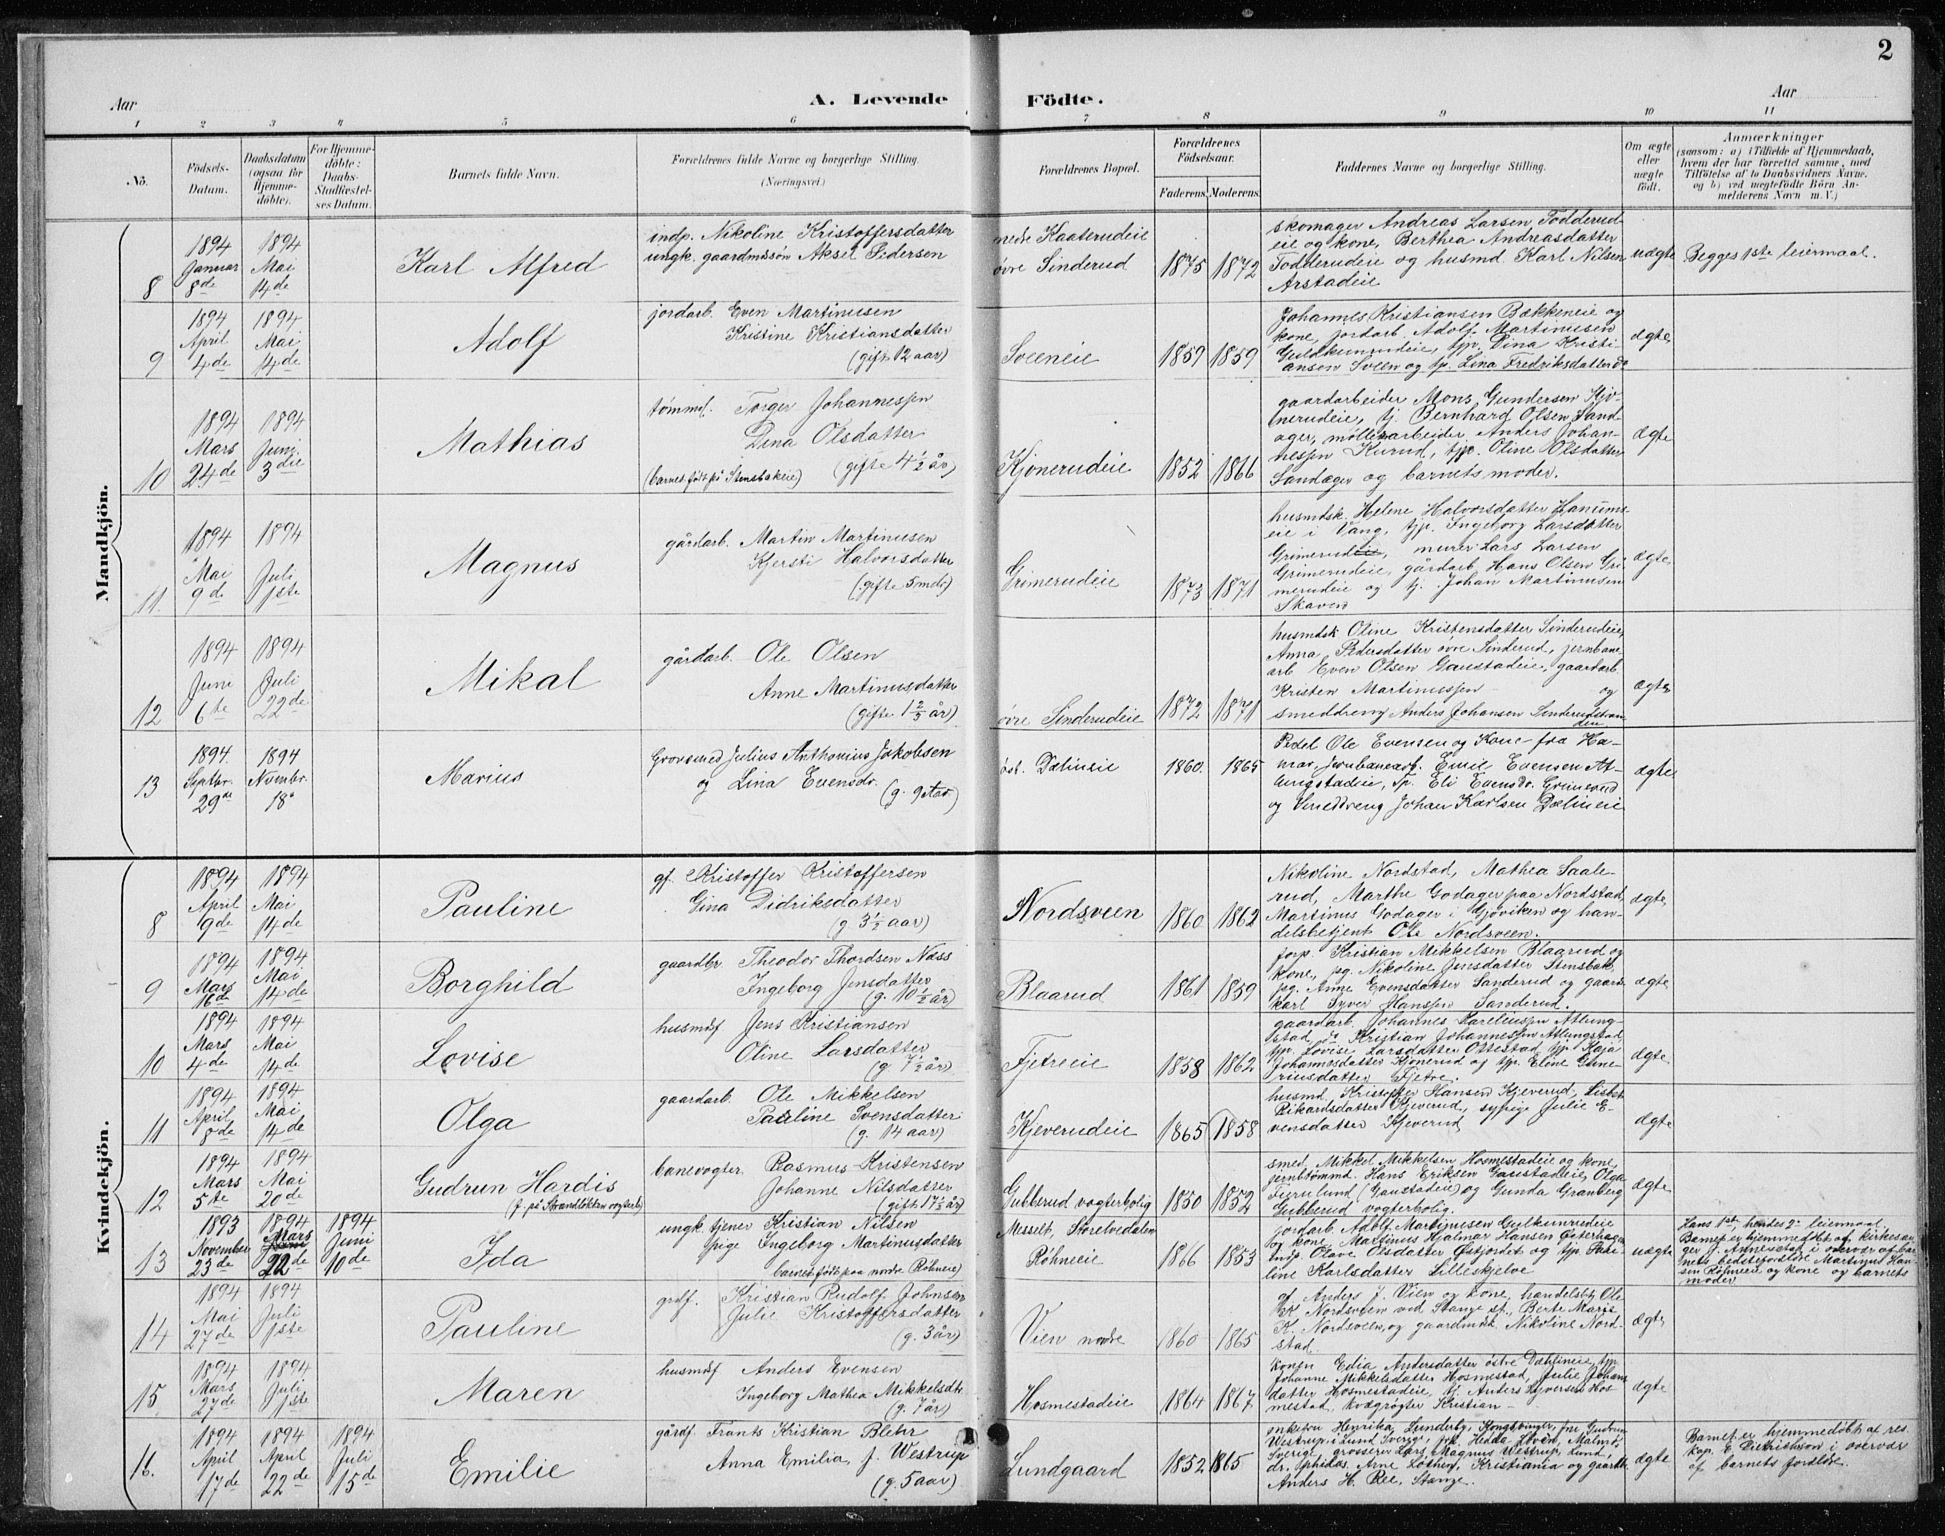 2
Aar
A. Levende Födte.
Aar
1 2 3 4 5 6 7 8 9 10 11
No.
Födsels-
Datum.
Daabsdatum
(ogsaa for
Hjemme-
döbte).
For Hjemme-
döbte:
Daabs-
Stadfæstel-
ses Datum.
Barnets fulde Navn.
Forældrenes fulde Navne og borgerlige Stilling.
(Næringsvei)
Forældrenes Bopæl.
Forældrenes
Födselsaar.
Faderens. Moderens.
Faddernes Navne og borgerlige Stilling.
Om ægte
eller
uægte
födt.
Anmærkninger
(saasom: a) i Tilfælde af Hjemmedaab,
hvem der har forrettet samme, med
Tilföielse af to Daabsvidners Navne.
og b) ved uægtefödte Börn An-
melderens Navn m. V.)
Mandkjön.
8
1894
Januar
8de
1894
Mai
14de
Karl Alfred
indp. Nikoline Kristoffersdatter
ungk. gaardmssøn Aksel Pedersen
nedre Kaaterudeie
øvre Sinderud
1875 1872
skomager Andreas Larsen Todderud-
eie og kone, Berthea Andreasdatter
Todderudeie og husmd. Karl Nilsen
Arstadeie
uægte
Begges 1ste leiermaal.
9
1894
April
4de
1894
Mai
14de
Adolf
jordarb. Even Martinusen
Kristine Kristiansdatter
(gift 12 aar)
Sveeneie
1859 1859
Johannes Kristiansen Bækkeneie og
kone, jordarb Adolf Martinusen
Gulkunrudeie, tjp. Dina Kristi
ansen Sveen og tp. Lina Fredriksdatter do
ægte
10
1894
Mars
24de
1894
Juni
3die
Mathias
tømmd. Torger Johannessen
Dina Olsdatter
(barnet født på Stensbakeie) (gifte 4½ år)
Kjønerudeie
1852 1866
gaardarbeider Mons Gundersen Kjø-
nerudeie, tj. Bernhard Olsen Sand-
ager, møllearbeider Anders Johan-
nessen Kurud, tjp. Oline Olsdatter
Sandager og barnets moder.
ægte
11.
1894
Mai
9de
1894
Juli
1ste
Magnus
gårdarb. Martin Martinusen
Kjersti Halvorsdatter
(gifte 5 mdr)
Grimerudeie
1873 1871
husmdsk. Helene Halvorsdatter Hanums-
eie i Vang, tjp. Ingeborg Larsdatter
Grimerudeie, murer Lars Larsen
Grimerudeie, gårdarb Hans Olsen Gri-
merudeie og tj. Johan Martinusen
Skaven
ægte
12
1894
Juni
6te
1894
Juli
22de
Mikal
gårdarb. Ole Olsen
Anne Martinusdatter
(gifte 1⅔ år)
øvre Sinderudeie
1872 1871
husmdsk Oline Kristensdatter Sinderudeie,
Anna Pedersdatter øvre Sinderud, jernbane
arb Even Olsen Gaustadeie, gaardarb
Kristen Martinussen og
smeddreng Anders Johansen
ægte
13
1894.
Septbr.
29de
1894
Novembr.
18de
Marius
Grovsmed Julius Anthonius Jakobsen
og Lina Evensdr. (g. 9 Aar)
øst. Dæleneie
1860. 1865
Pedel Ole Evensen og Kone fra Ha-
mar, Jernbanearb. Emil Evensen At-
lungstadeie, Tp. Eli Evensdr. Grimerud
og Smeddreng Johan Karlsen Dælineie
ægte
Kvindekjön.
8
1894
April
9de
1894
Mai
14de
Pauline
gf. Kristoffer Kristoffersen
Gina Didriksdatter
(g 3½ aar)
Nordsveen
1860 1862
Nikoline Nordstad, Mathea Saale-
rud, Marthe Godager paa Nordstad,
Martinus Godager i Gjøviken og han-
delsbetjent Ole Nordsveen.
ægte
9
1894
Mars
16de
1894
Mai
14de
Borghild
gaardbr Theodor Thordsen Næss
Ingeborg Jensdatter
(g. 10½ år)
Blaarud
1861 1859
forp. Kristian Mikkelsen Blagrud og
kone, pg. Nikoline Jensdatter Stensbak,
pg. Anne Evensdatter Sanderud og gaards
karl Syver Hanssen Sanderud.
ægte
10
1894
Mars
4de
1894
Mai
14de
Lovise
husmdf Jens Kristiansen
Oline Larsdatter
(g 7½ år)
Fjetreeie
1858 1862
gaardarb. Johannes Kareliussen Atlung-
stad, do Kristian Johannessen Atlungstad,
tjp. Lovise Larsdatter Ottestad, tjp. Kaja
Johannesdatter Kjønerud og tjp. Eline
riusdatter Fjetre.
ægte
11
1894
April
8de
1894
Mai
14de
Olga
gaardarb. Ole Mikkelsen
Pauline Svensdatter
(g. 14 aar)
Kjeverudeie
1865 1858
husmd. Kristoffer Hansen Kjeverud, Lisbet
Rikardsdatter Kjeverud, sypige Julie E-
vensdatter Kjeverud
ægte
12
1894
Mars
5te
1894
Mai
20de
Gudrun Hardis
(f. på Strandlökken vogterb)
banevogter Rasmus Kristensen
Johanne Nilsdatter
(gift 17½ år)
Gubberud vogterbolig
1850 1852
smed Mikkel Mikkelsen Hosmestadeie og kone,
jernbtømmd. Hans Eriksen Gaustadeie, Olga
Furulund (Gaustadeie) og Gunda Granberg
Gubberud vogterbolig.
ægte
13
1893
November
23de
1894
Mars
22de
1894
Juni
10de
Ida
ungk tjener Kristian Nilsen
pige Ingeborg Martinusdatter
barnet født paa nordre Röhneie)
Messelt, Storelvedalen
Röhneeie
1866 1853
jordarb Adolf Martinusen Gulkunrudeie
og kone, Martinus Hjalmar Hansen Østerhagen
indp Olave Olsdatter Østjordet og tjp. Pau-
line Karlsdatter Lilleskjelve
uægte
Hans 1ste, hendes 2n leiermaal
Barnet er hjemmedøbt af kirkesan-
ger J. Annerstad i overvær af bar-
nets bedsteforældre Martinus Han-
sen Röhneeie og kone og barnets
moder
14
1894
Mai
27de
1894
Juli
1ste
Pauline
grdf. Kristian Rudolf Johnsen
Julie Kristoffersdatter
(g. 3 år)
Vien nedre
1860 1865
gf Anders J. Vien og kone, handelsbt. Ole
K Nordsveen ved Stange st., Berte Marie
K. Nordsveen, og gaardmdsk Nikoline Nord-
stad.
ægte
15
1894
Mars
27de
1894
Juli
1ste
Maren
husmdf Anders Evensen
Ingeborg Mathea Mikkelsdtr
(g. 7 år)
Hosmestadeie
1864 1867
konfir Edia Andersdatter østre Dæhlineie, tjp.
Johanne Mikkelsdatter Hosmestad, Julie Johans
datter Hosmestadeie, tj. Anders Syversen Hos
mestad, kvægrøgter Kristian
ægte
16.
1894
April
17de
1894
April
22de
1894
Juli
15de
Emilie
gårdf. Frants Kristian Blehr
Anna Emilia, f. Westrup
(g. 5 aar)
Lundgaard
1852 1865
enkefru Henrika Lunderby, Kongsvinger, frk Gudrun
Westrup, i Lund Sverige, frk. Hedda Malmø,
Sverige, grosserer Lars Magnus Westrup, Lund,
dr. philos. Arne Løchen, Kristiania og gaardbr
Anders H. Ree, Stange.
ægte
Barnet er hjemmedøbt af res.
kap. E Dietrichson i overvær
af barnets foreldre.